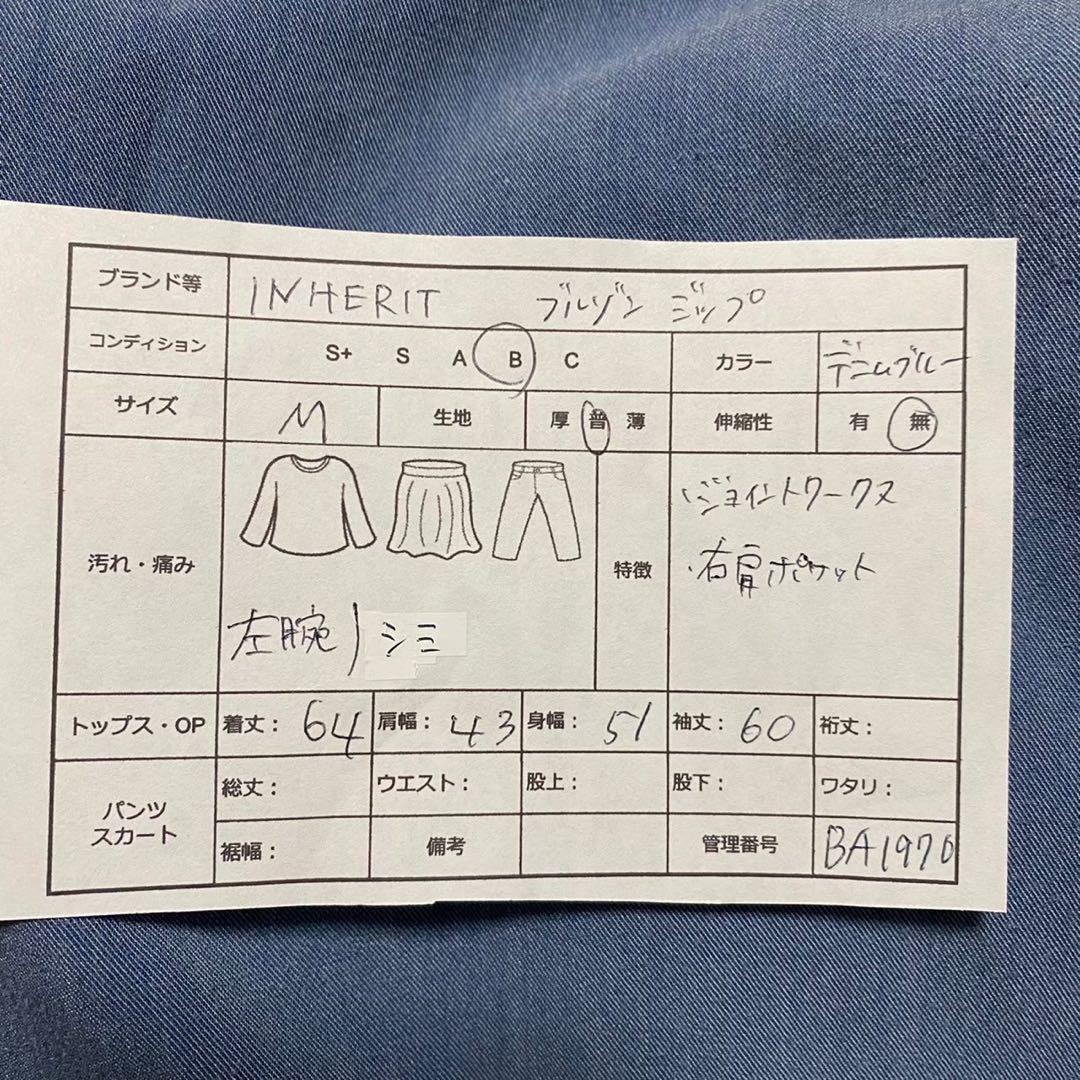 ブランド等 INHERIT ブルゾン ジップ
コンディション S+ S A B C カラー デニムブルー
サイズ M 生地 厚 普 薄 伸縮性 有 無
汚れ・痛み 左腕 シミ 特徴 ・ジョイントワークス
・右肩ポケット
トップス・OP 着丈： 64 肩幅： 43 身幅： 51 袖丈： 60 裄丈：
パンツ スカート 総丈： ウエスト： 股上： 股下： ワタリ：
裾幅： 備考 管理番号 BA1970